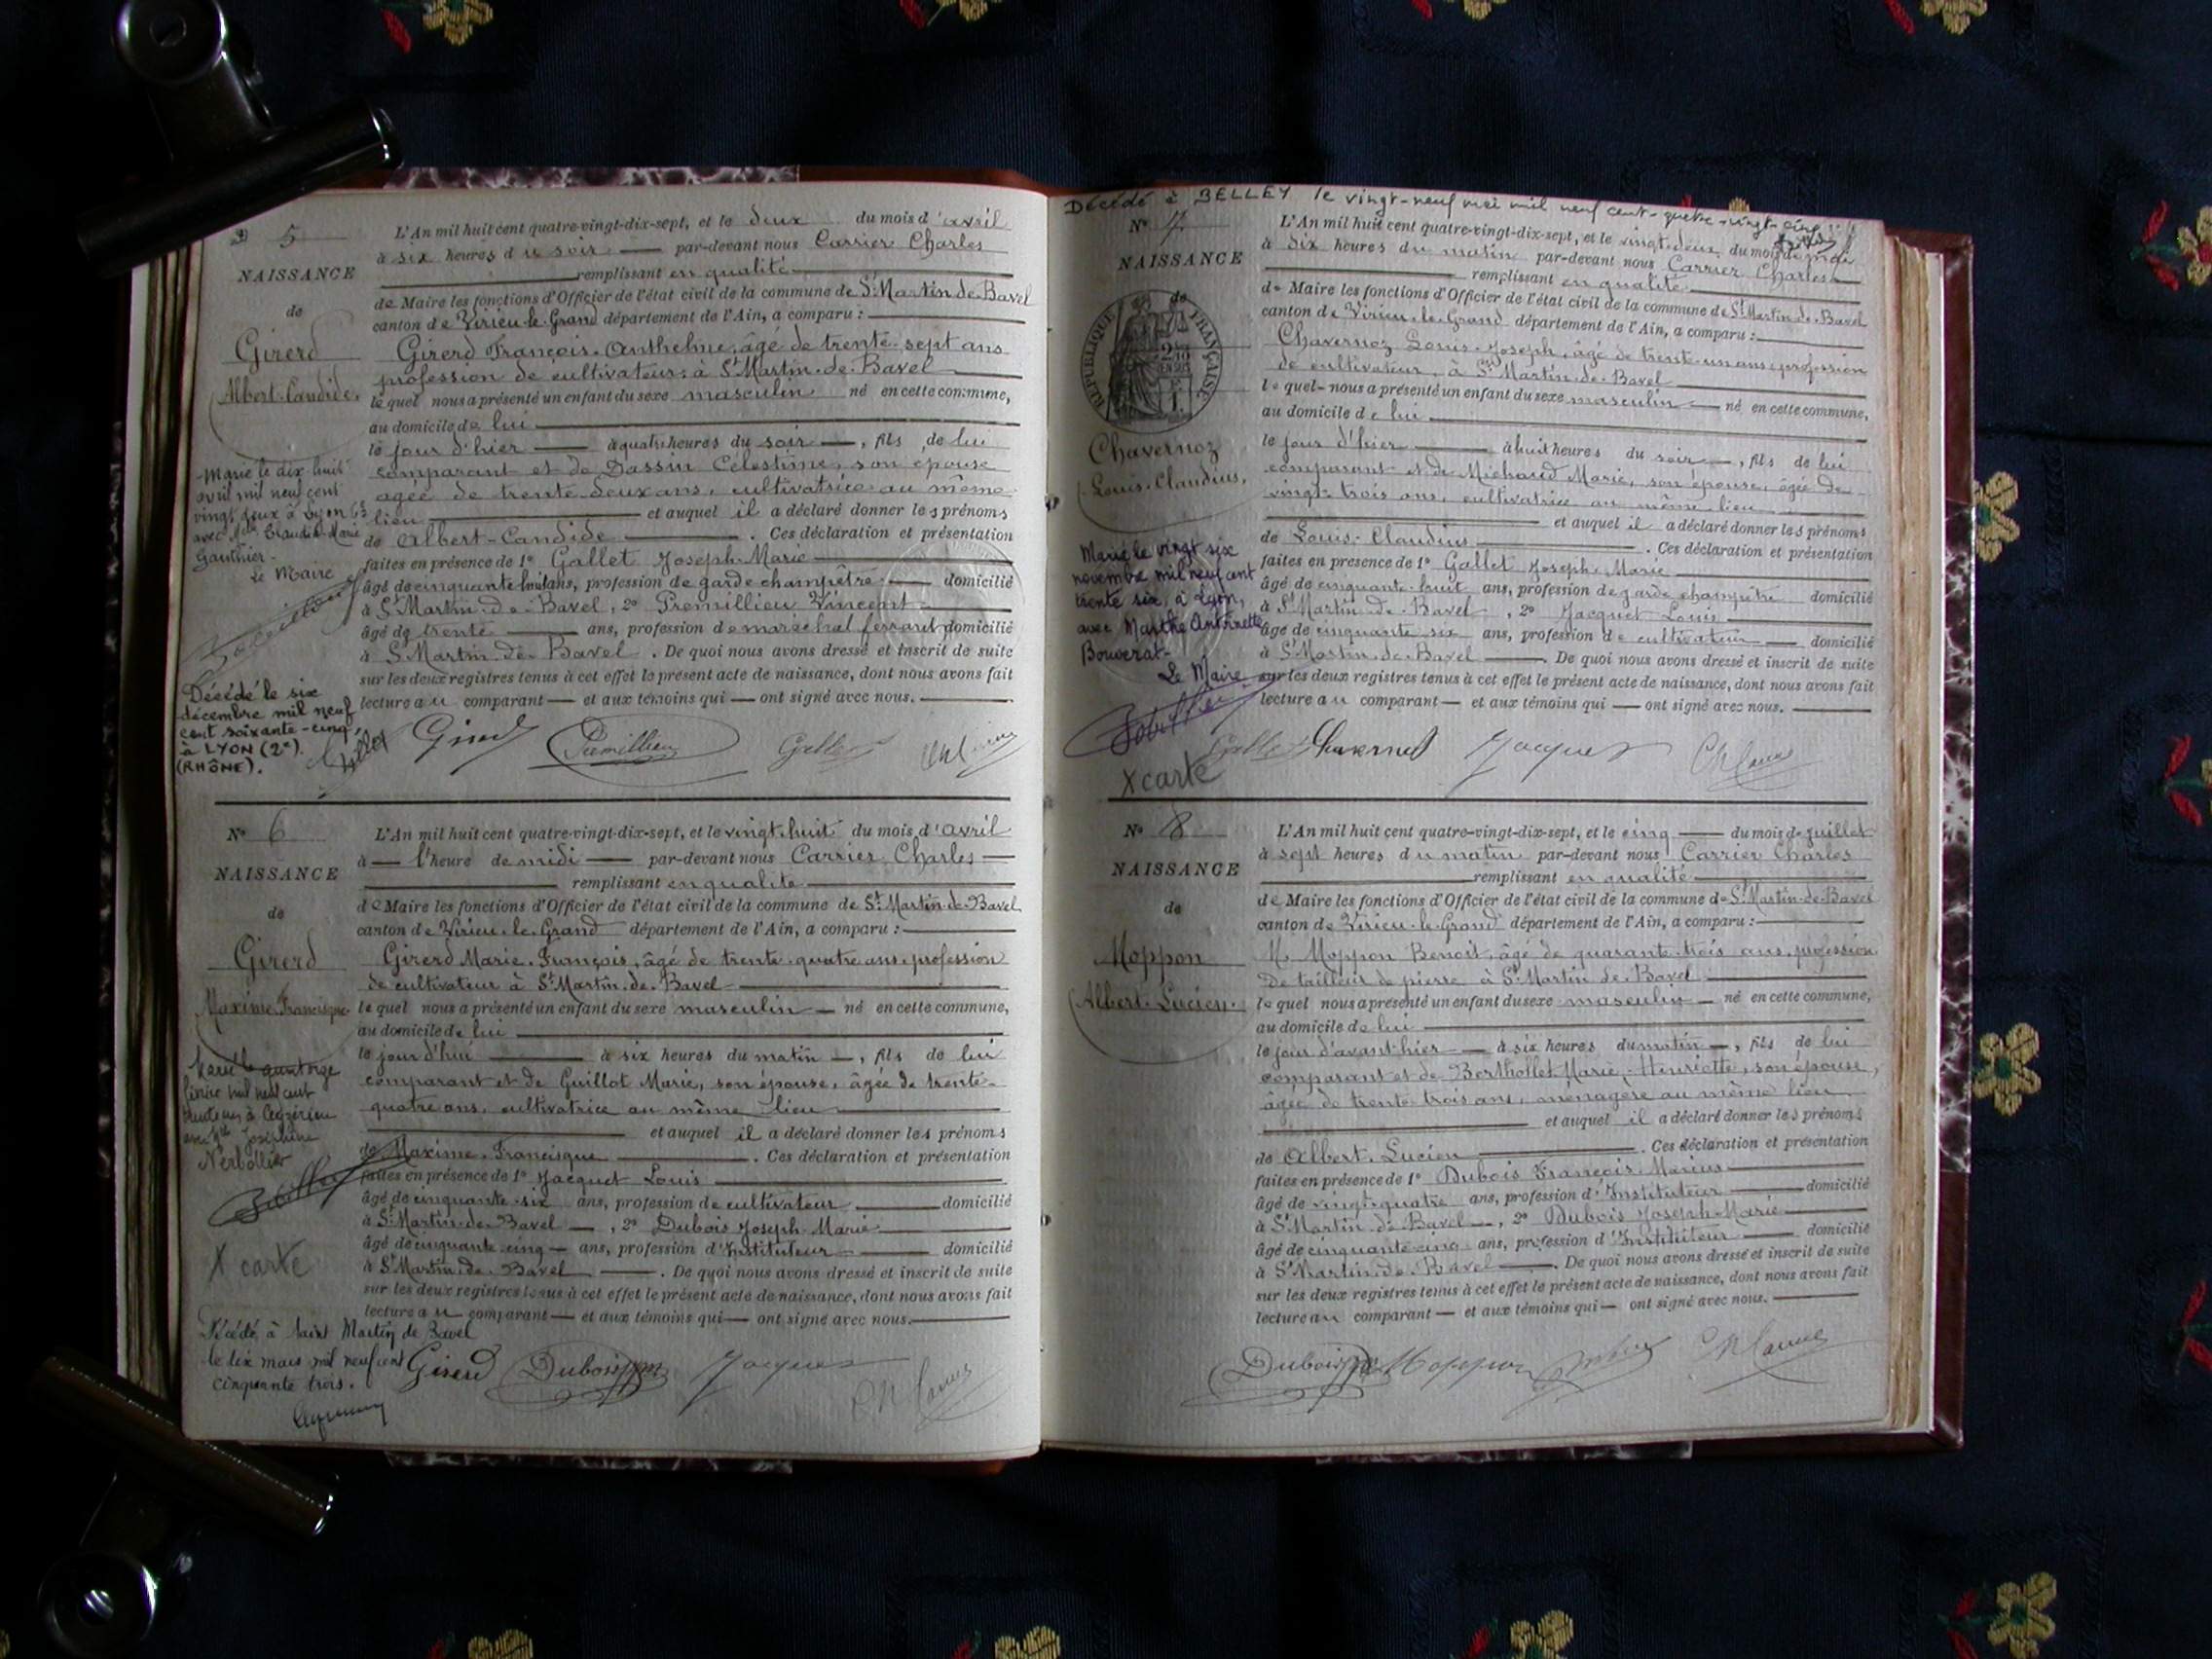 N° 5
NAISSANCE
de
Girerd
Albert-Candide.
Marié le dix-huit
avril mil neuf cent
vingt deux à Lyon 6e
avec Mlle Claudia-Marie
Gauthier -
Le Maire
Décédé le six
décembre mil neuf
cent soixante-cinq,
à LYON (2e).
(RHÔNE).
L'An mil huit cent quatre-vingt-dix-sept, et le deux du mois d'avril
à six heures du soir — par-devant nous Carrier Charles
remplissant en qualité
de Maire les fonctions d'Officier de l'état civil de la commune de St Martin-de-Bavel
canton de Virieu-le-Grand département de l'Ain, a comparu :
Girerd François-Anthelme, âgé de trente-sept ans
profession de cultivateur, à St Martin-de-Bavel
lequel nous a présenté un enfant du sexe masculin né en cette commune,
au domicile de lui
le jour d'hier — à quatre heures du soir —, fils de lui
comparant et de Dassin Célestine, son épouse
âgée de trente-deux ans, cultivatrice au même
lieu — et auquel il a déclaré donner les prénoms
de Albert-Candide — . Ces déclaration et présentation
faites en présence de 1° Gallet Joseph-Marie
âgé de cinquante huit ans, profession de garde champêtre — domicilié
à St Martin-de-Bavel, 2° Premillieu Vincent
âgé de trente — ans, profession de maréchal ferrant domicilié
à St Martin-de-Bavel . De quoi nous avons dressé et inscrit de suite
sur les deux registres tenus à cet effet le présent acte de naissance, dont nous avons fait
lecture au comparant — et aux témoins qui — ont signé avec nous.
Girerd Premillieu Gallet
N° 6
NAISSANCE
de
Girerd
Maxime-Francisque
Marié le quatorze
février mil neuf cent
à Ceyzérieu
avec Mlle Joséphine
X carte
Décédé à Saint Martin de Bavel
le dix mars mil neuf cent
cinquante trois.
L'An mil huit cent quatre-vingt-dix-sept, et le vingt-huit du mois d'avril
à — l'heure de midi — par-devant nous Carrier Charles —
remplissant en qualité
de Maire les fonctions d'Officier de l'état civil de la commune de St Martin-de-Bavel
canton de Virieu-le-Grand département de l'Ain, a comparu :
Girerd Marie-François, âgé de trente-quatre ans, profession
de cultivateur à St Martin-de-Bavel
lequel nous a présenté un enfant du sexe masculin — né en cette commune,
au domicile de lui
le jour d'hui — à six heures du matin —, fils de lui
comparant et de Guillot Marie, son épouse, âgée de trente-
quatre ans, cultivatrice au même lieu
et auquel il a déclaré donner les prénoms
de Maxime-Francisque — . Ces déclaration et présentation
faites en présence de 1° Jacquet Louis
âgé de cinquante-six ans, profession de cultivateur — domicilié
à St Martin-de-Bavel —, 2° Dubois Joseph-Marie
âgé de cinquante cinq — ans, profession d'Instituteur — domicilié
à St Martin-de-Bavel — . De quoi nous avons dressé et inscrit de suite
sur les deux registres tenus à cet effet le présent acte de naissance, dont nous avons fait
lecture au comparant — et aux témoins qui — ont signé avec nous.
Girerd Dubois Jacquet
Décédé à BELLEY le vingt-neuf mai mil neuf cent-quatre-vingt-cinq
N° 7
NAISSANCE
de
RÉPUBLIQUE FRANÇAISE
Chavernoz
Louis-Claudius,
Marié le vingt six
novembre mil neuf cent
trente six, à Lyon,
avec Marthe Antoinette
Bouverat-
Le Maire
X carte
L'An mil huit cent quatre-vingt-dix-sept, et le vingt-deux du mois de mai
à dix heures du matin par-devant nous Carrier Charles
remplissant en qualité
de Maire les fonctions d'Officier de l'état civil de la commune de St Martin-de-Bavel
canton de Virieu-le-Grand département de l'Ain, a comparu :
Chavernoz Louis-Joseph, âgé de trente-un ans, profession
de cultivateur, à St Martin-de-Bavel
lequel nous a présenté un enfant du sexe masculin — né en cette commune,
au domicile de lui
le jour d'hier — à huit heures du soir —, fils de lui
comparant et de Michaud Marie, son épouse, âgée de
vingt-trois ans, cultivatrice au même lieu
et auquel il a déclaré donner les prénoms
de Louis-Claudius — . Ces déclaration et présentation
faites en présence de 1° Gallet Joseph-Marie
âgé de cinquante-huit ans, profession de garde champêtre domicilié
à St Martin-de-Bavel, 2° Jacquet Louis
âgé de cinquante six ans, profession de cultivateur — domicilié
à St Martin-de-Bavel — . De quoi nous avons dressé et inscrit de suite
sur les deux registres tenus à cet effet le présent acte de naissance, dont nous avons fait
lecture au comparant — et aux témoins qui — ont signé avec nous.
Gallet Jacquet
N° 8
NAISSANCE
de
Moppon
Albert-Lucien
L'An mil huit cent quatre-vingt-dix-sept, et le cinq — du mois de juillet
à sept heures du matin par-devant nous Carrier Charles
remplissant en qualité
de Maire les fonctions d'Officier de l'état civil de la commune de St Martin-de-Bavel
canton de Virieu-le-Grand département de l'Ain, a comparu :
M. Moppon Benoit, âgé de quarante-trois ans, profession
de tailleur de pierre à St Martin-de-Bavel
lequel nous a présenté un enfant du sexe masculin — né en cette commune,
au domicile de lui
le jour d'avant-hier — à six heures du matin —, fils de lui
comparant et de Berthollet Marie-Henriette, son épouse,
âgée de trente-trois ans, ménagère au même lieu
et auquel il a déclaré donner les prénoms
de Albert-Lucien — . Ces déclaration et présentation
faites en présence de 1° Dubois François-Marius
âgé de vingt-quatre ans, profession d'Instituteur — domicilié
à St Martin-de-Bavel —, 2° Dubois Joseph-Marie
âgé de cinquante-cinq ans, profession d'Instituteur — domicilié
à St Martin-de-Bavel — . De quoi nous avons dressé et inscrit de suite
sur les deux registres tenus à cet effet le présent acte de naissance, dont nous avons fait
lecture au comparant — et aux témoins qui — ont signé avec nous.
Dubois Moppon